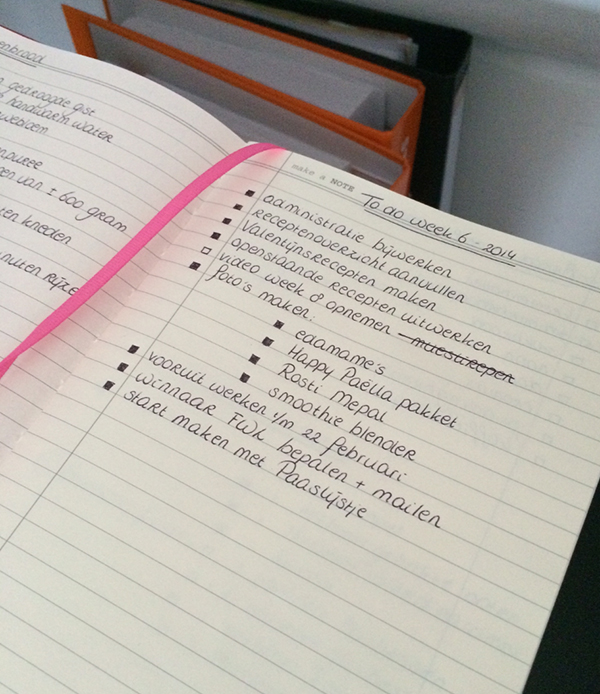 enbrood
gedroogde gist
handwarm water
puree
gen van ± 600 gram
ten kneden
nuten rijze
make a NOTE
To do week 6 - 2014
administratie bijwerken
receptenoverzicht aanvullen
Valentijnsrecepten maken
openstaande recepten uitwerken
video week 8 opnemen muesirepen
foto's maken:
edamame's
Happy Paëlla pakket
Rosti Mepal
smoothie blender
vooruit werken t/m 22 februari
winnaar FWK bepalen + mailen
start maken met Paaslijstje